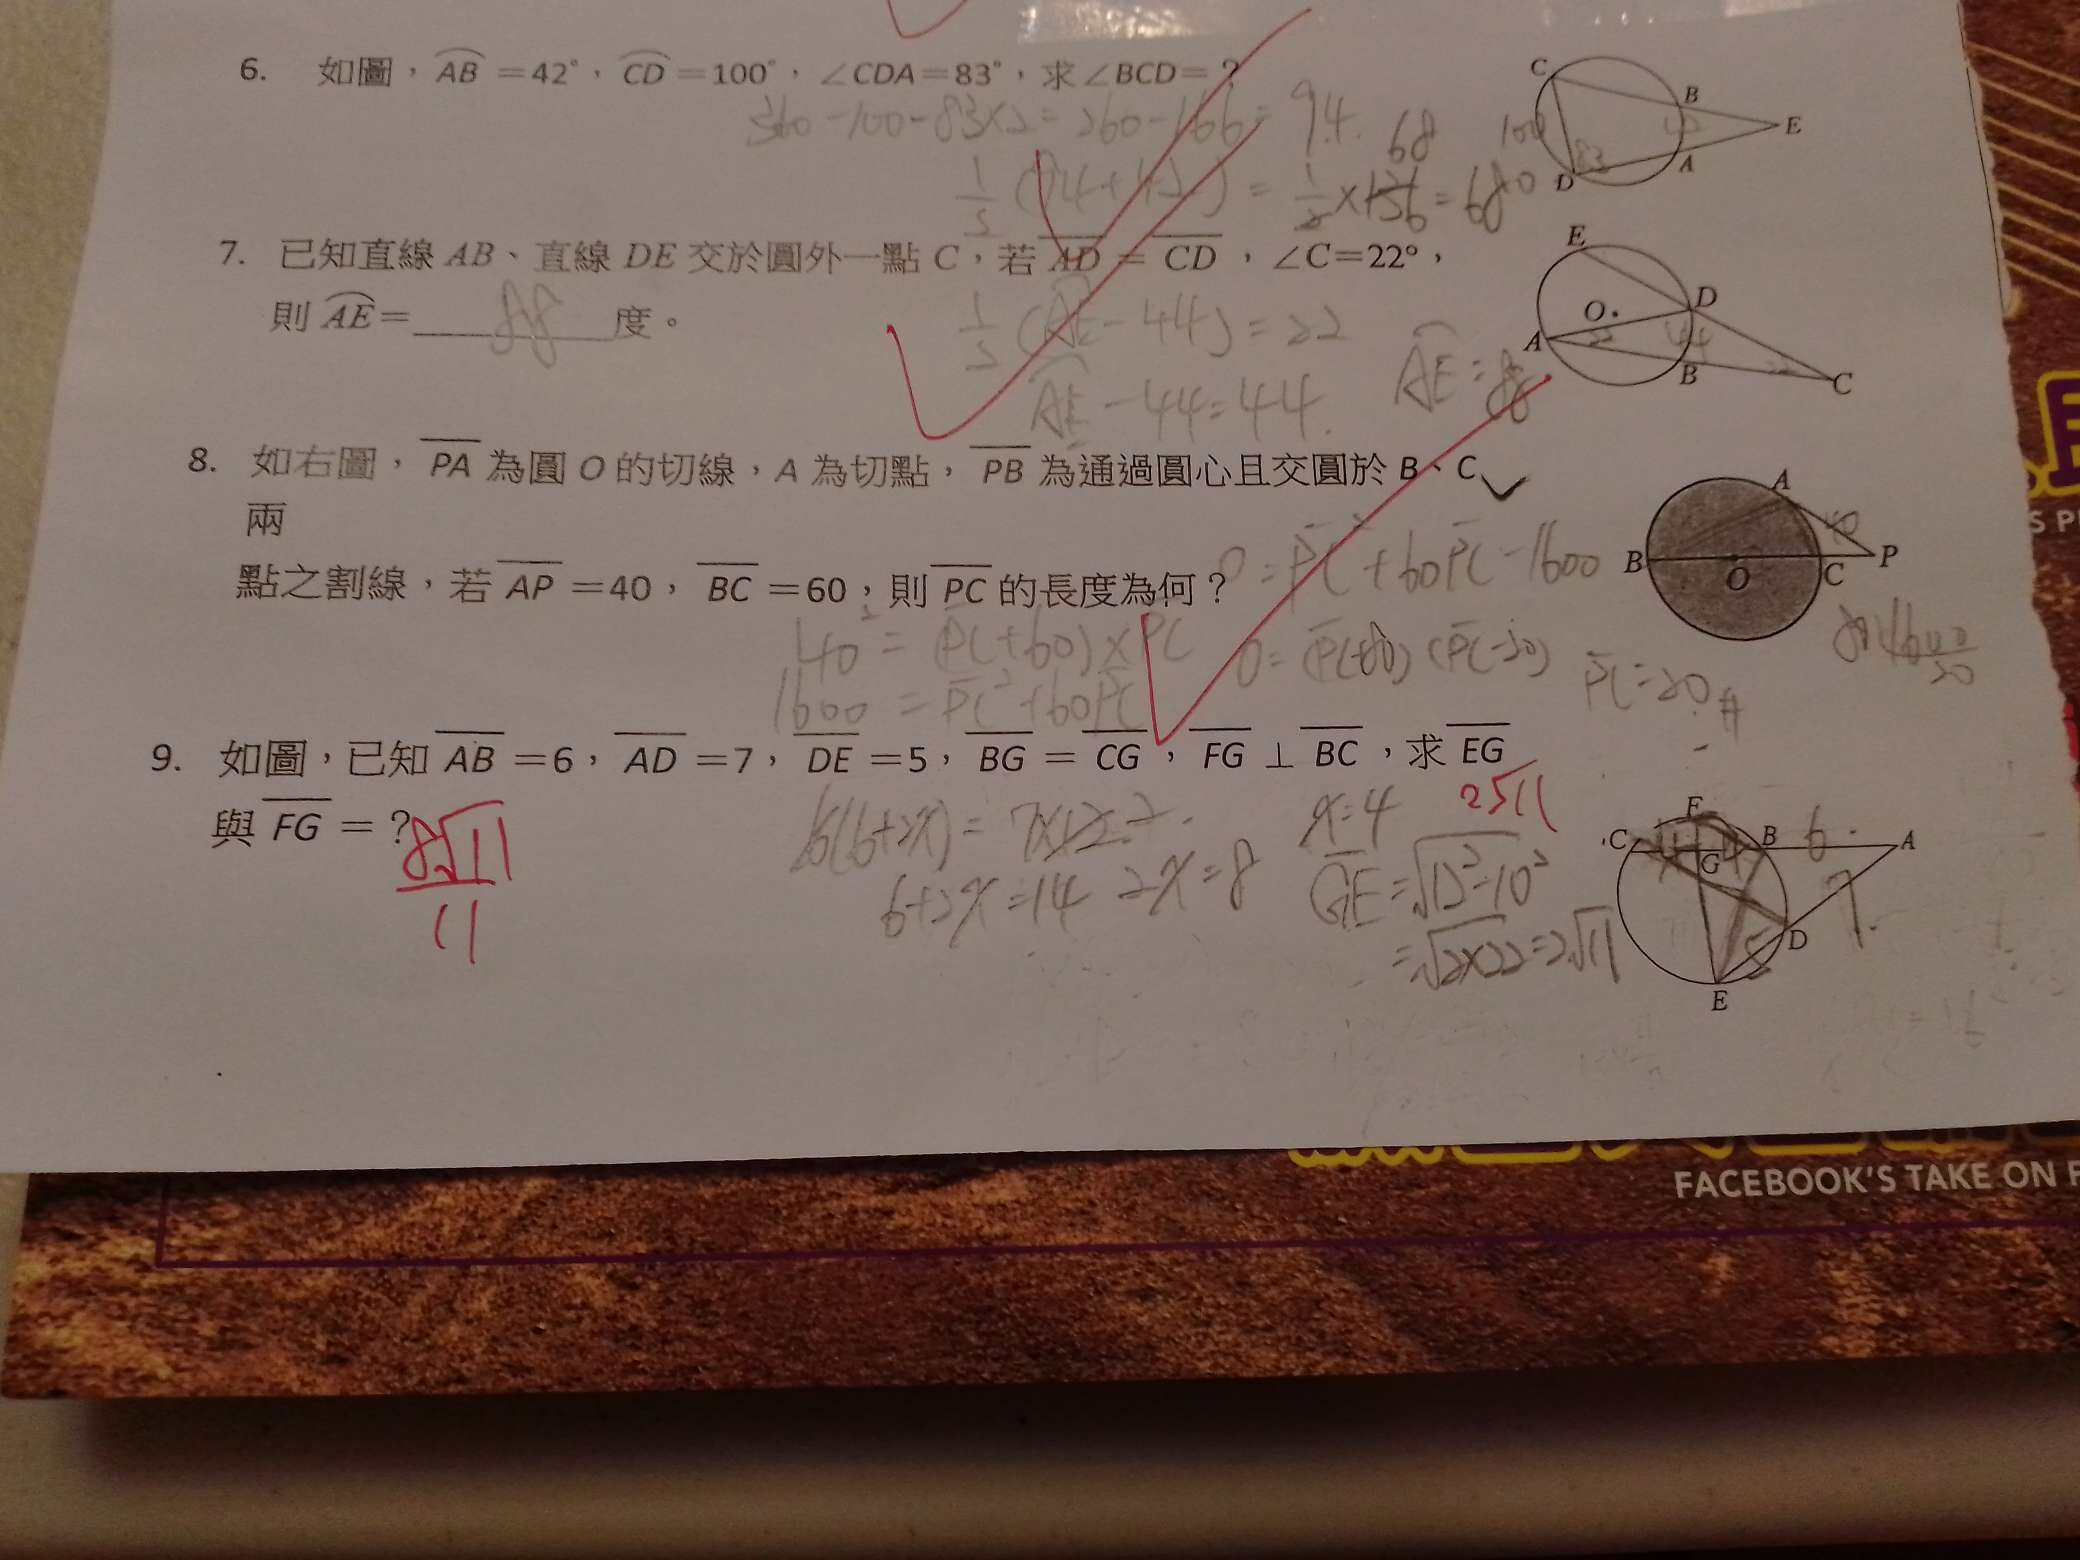 6. 如圖，AB =42°，CD =100°，∠CDA=83°，求∠BCD=？
360-100-83×2=260-166=94. 68
1/2 (94+42) = 1/2 ×136=68°
C B E A D 100 42 83
7. 已知直線 AB、直線 DE 交於圓外一點 C，若 AD = CD ，∠C=22°，
則 AE=88度。
1/2 (AE-44)=22
AE-44=44. AE=88
E D O A B C 22 44 22
8. 如右圖， PA 為圓 O 的切線，A 為切點， PB 為通過圓心且交圓於 B、C
兩
點之割線，若 AP =40， BC =60，則 PC 的長度為何？
0=PC²+60PC-1600
40² = (PC+60)×PC
0=(PC+80)(PC-20)
1600 = PC²+60PC
PC=20#
A B O C P 40
9. 如圖，已知 AB =6， AD =7， DE =5， BG = CG ， FG ⊥ BC ，求 EG
與 FG = ？
8√11/11
2√11
6(6+2x)=7×12 2
6+2x=14 2x=8
x=4
GE=√12²-10²
=√2×22=2√11
C F B A G D E 6 7 5
FACEBOOK'S TAKE ON F